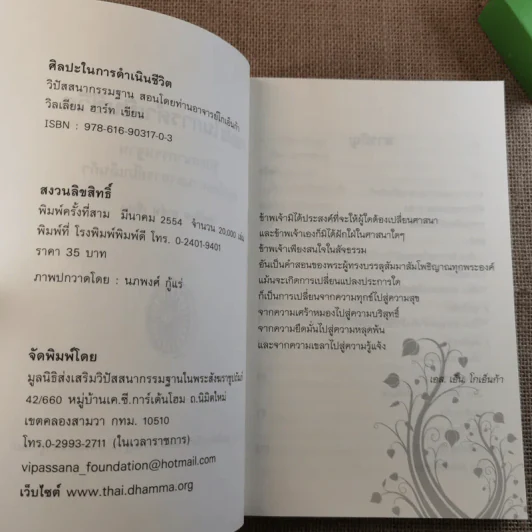 ศิลปะในการดำเนินชีวิต
วิปัสสนากรรมฐาน สอนโดยท่านอาจารย์โกเอ็นก้า
วิลเลียม ฮาร์ท เขียน
ISBN : 978-616-90317-0-3
สงวนลิขสิทธิ์
พิมพ์ครั้งที่สาม มีนาคม 2554 จำนวน 20,000 เล่ม
พิมพ์ที่ โรงพิมพ์พิมพ์ดี โทร. 0-2401-9401
ราคา 35 บาท
ภาพปกวาดโดย : นภพงศ์ กู้แร่
จัดพิมพ์โดย
มูลนิธิส่งเสริมวิปัสสนากรรมฐานในพระสังฆราชูปถัมภ์
42/660 หมู่บ้านเค.ซี.การ์เด้นโฮม ถ.นิมิตใหม่
เขตคลองสามวา กทม. 10510
โทร.0-2993-2711 (ในเวลาราชการ)
vipassana_foundation@hotmail.com
เว็บไซต์ www.thai.dhamma.org
ข้าพเจ้ามิได้ประสงค์ที่จะให้ผู้ใดต้องเปลี่ยนศาสนา
และข้าพเจ้าเองก็มิได้ฝักใฝ่ในศาสนาใดๆ
ข้าพเจ้าเพียงสนใจในสัจธรรม
อันเป็นคำสอนของพระผู้ทรงบรรลุสัมมาสัมโพธิญาณทุกพระองค์
แม้นจะเกิดการเปลี่ยนแปลงประการใด
ก็เป็นการเปลี่ยนจากความทุกข์ไปสู่ความสุข
จากความเศร้าหมองไปสู่ความบริสุทธิ์
จากความยึดมั่นไปสู่ความหลุดพ้น
และจากความเขลาไปสู่ความรู้แจ้ง
เอส. เอ็น. โกเอ็นก้า